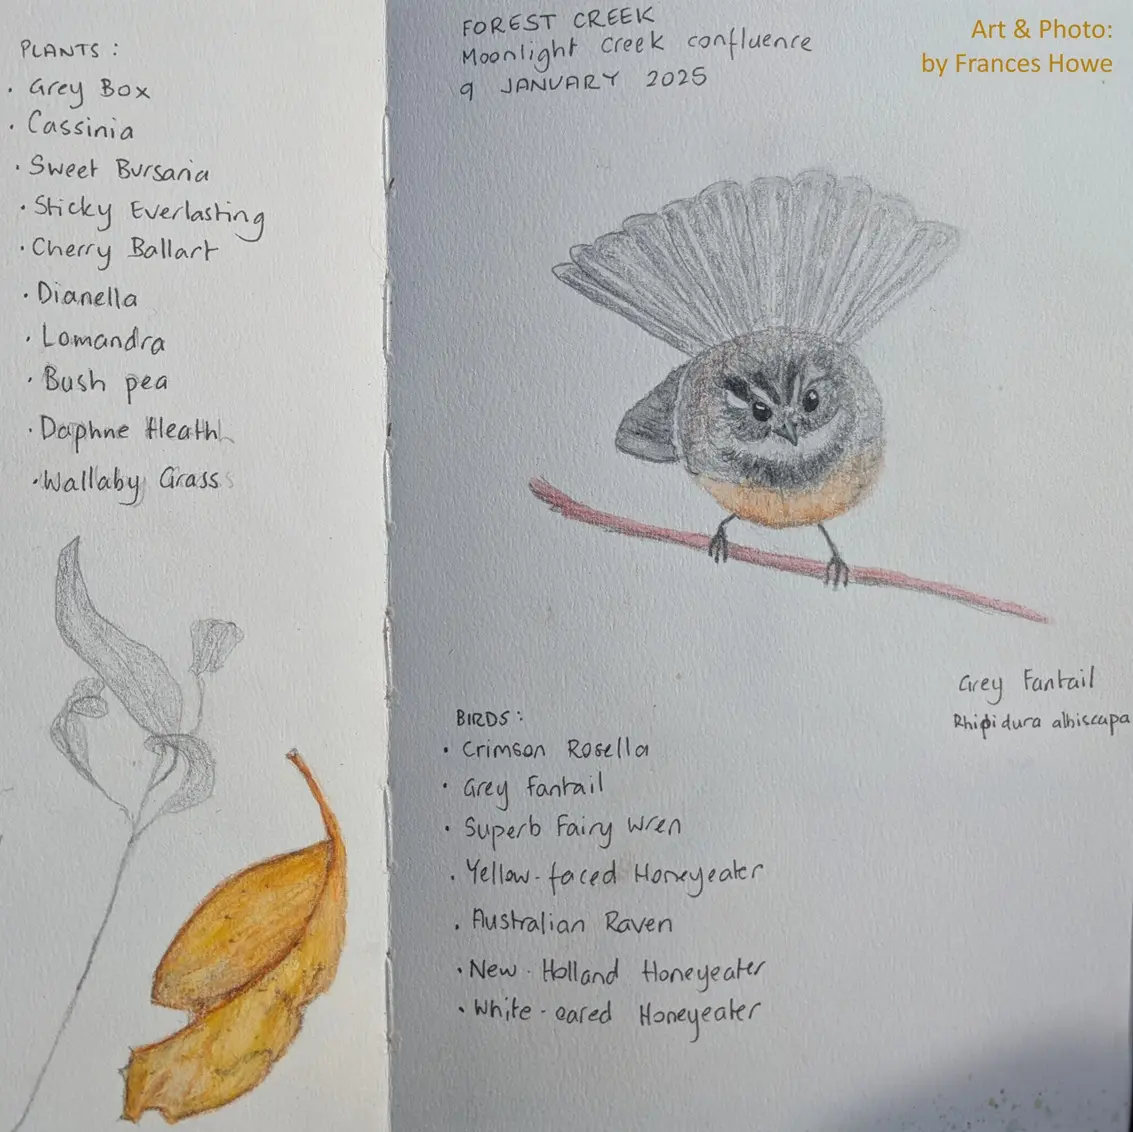 PLANTS:
· Grey Box
· Cassinia
· Sweet Bursaria
· Sticky Everlasting
· Cherry Ballart
· Dianella
· Lomandra
· Bush pea
· Daphne Heath
· Wallaby Grass
FOREST CREEK
Moonlight Creek confluence
9 JANUARY 2025
Art & Photo:
by Frances Howe
Grey Fantail
Rhipidura albiscapa
BIRDS:
· Crimson Rosella
· Grey Fantail
· Superb Fairy Wren
· Yellow-faced Honeyeater
· Australian Raven
· New-Holland Honeyeater
· White-eared Honeyeater